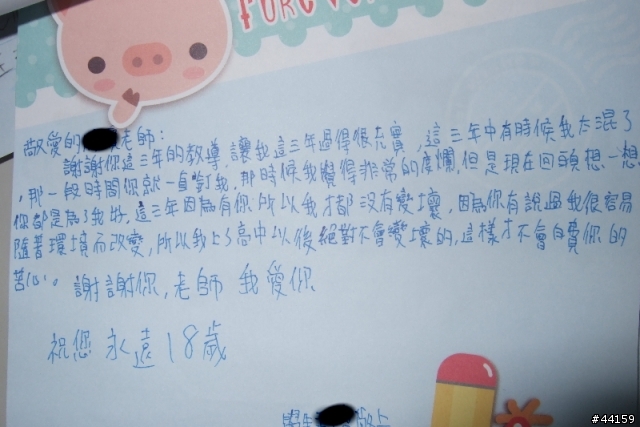 FOREVE
敬愛的 老師：
謝謝你這三年的教導，讓我這三年過得很充實，這三年中有時候我太混了
，那一段時間你就一直對我，那時候我覺得非常的度爛，但是現在回頭想一想
你都是為了我好，這三年因為有你所以我才都沒有變壞，因為你有說過我很容易
隨著環境而改變，所以我上了高中以後絕對不會變壞的，這樣才不會白費你的
苦心。謝謝你，老師 我愛你
祝您 永遠18歲
學生 敬上
#44159